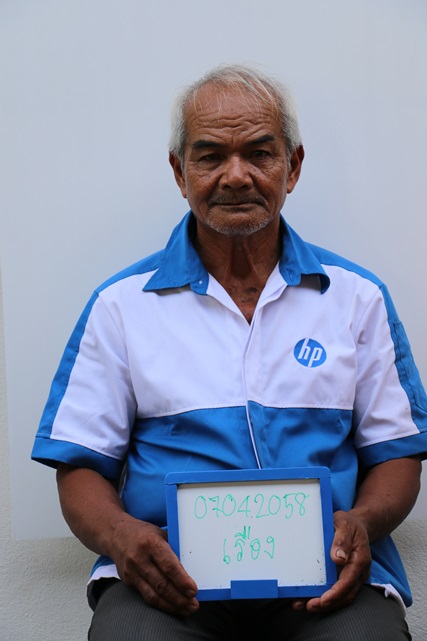 hp
0704.2058
เรือง